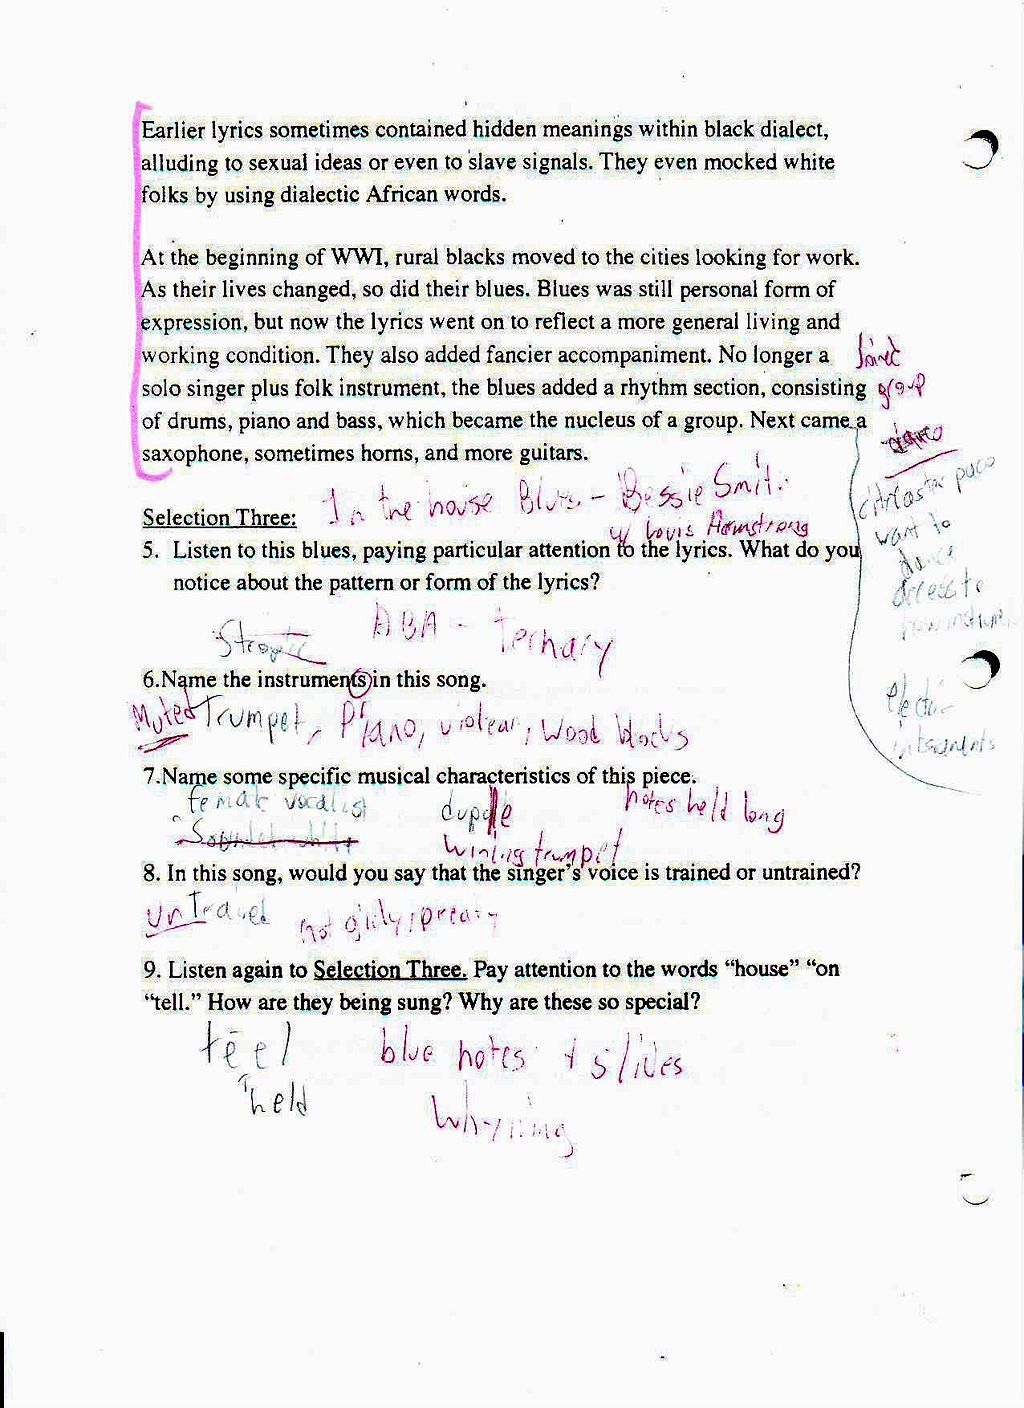 Earlier lyrics sometimes contained hidden meanings within black dialect,
alluding to sexual ideas or even to slave signals. They even mocked white
folks by using dialectic African words.
At the beginning of WWI, rural blacks moved to the cities looking for work.
As their lives changed, so did their blues. Blues was still personal form of
expression, but now the lyrics went on to reflect a more general living and
working condition. They also added fancier accompaniment. No longer a
solo singer plus folk instrument, the blues added a rhythm section, consisting
group
of drums, piano and bass, which became the nucleus of a group. Next came a
saxophone, sometimes horns, and more guitars.
want to
dance
access to
instruments
Selection Three:
In the house Blues - Bessie Smith
w/ Louis Armstrong
5. Listen to this blues, paying particular attention to the lyrics. What do you
notice about the pattern or form of the lyrics?
ABA - Ternary
6.Name the instrument(s) in this song.
Muted Trumpet, Piano, wood blocks
7.Name some specific musical characteristics of this piece.
female vocalist duple notes held long
trumpet
8. In this song, would you say that the singer's voice is trained or untrained?
not
9. Listen again to Selection Three. Pay attention to the words "house" "on
"tell." How are they being sung? Why are these so special?
blue notes + slides
held